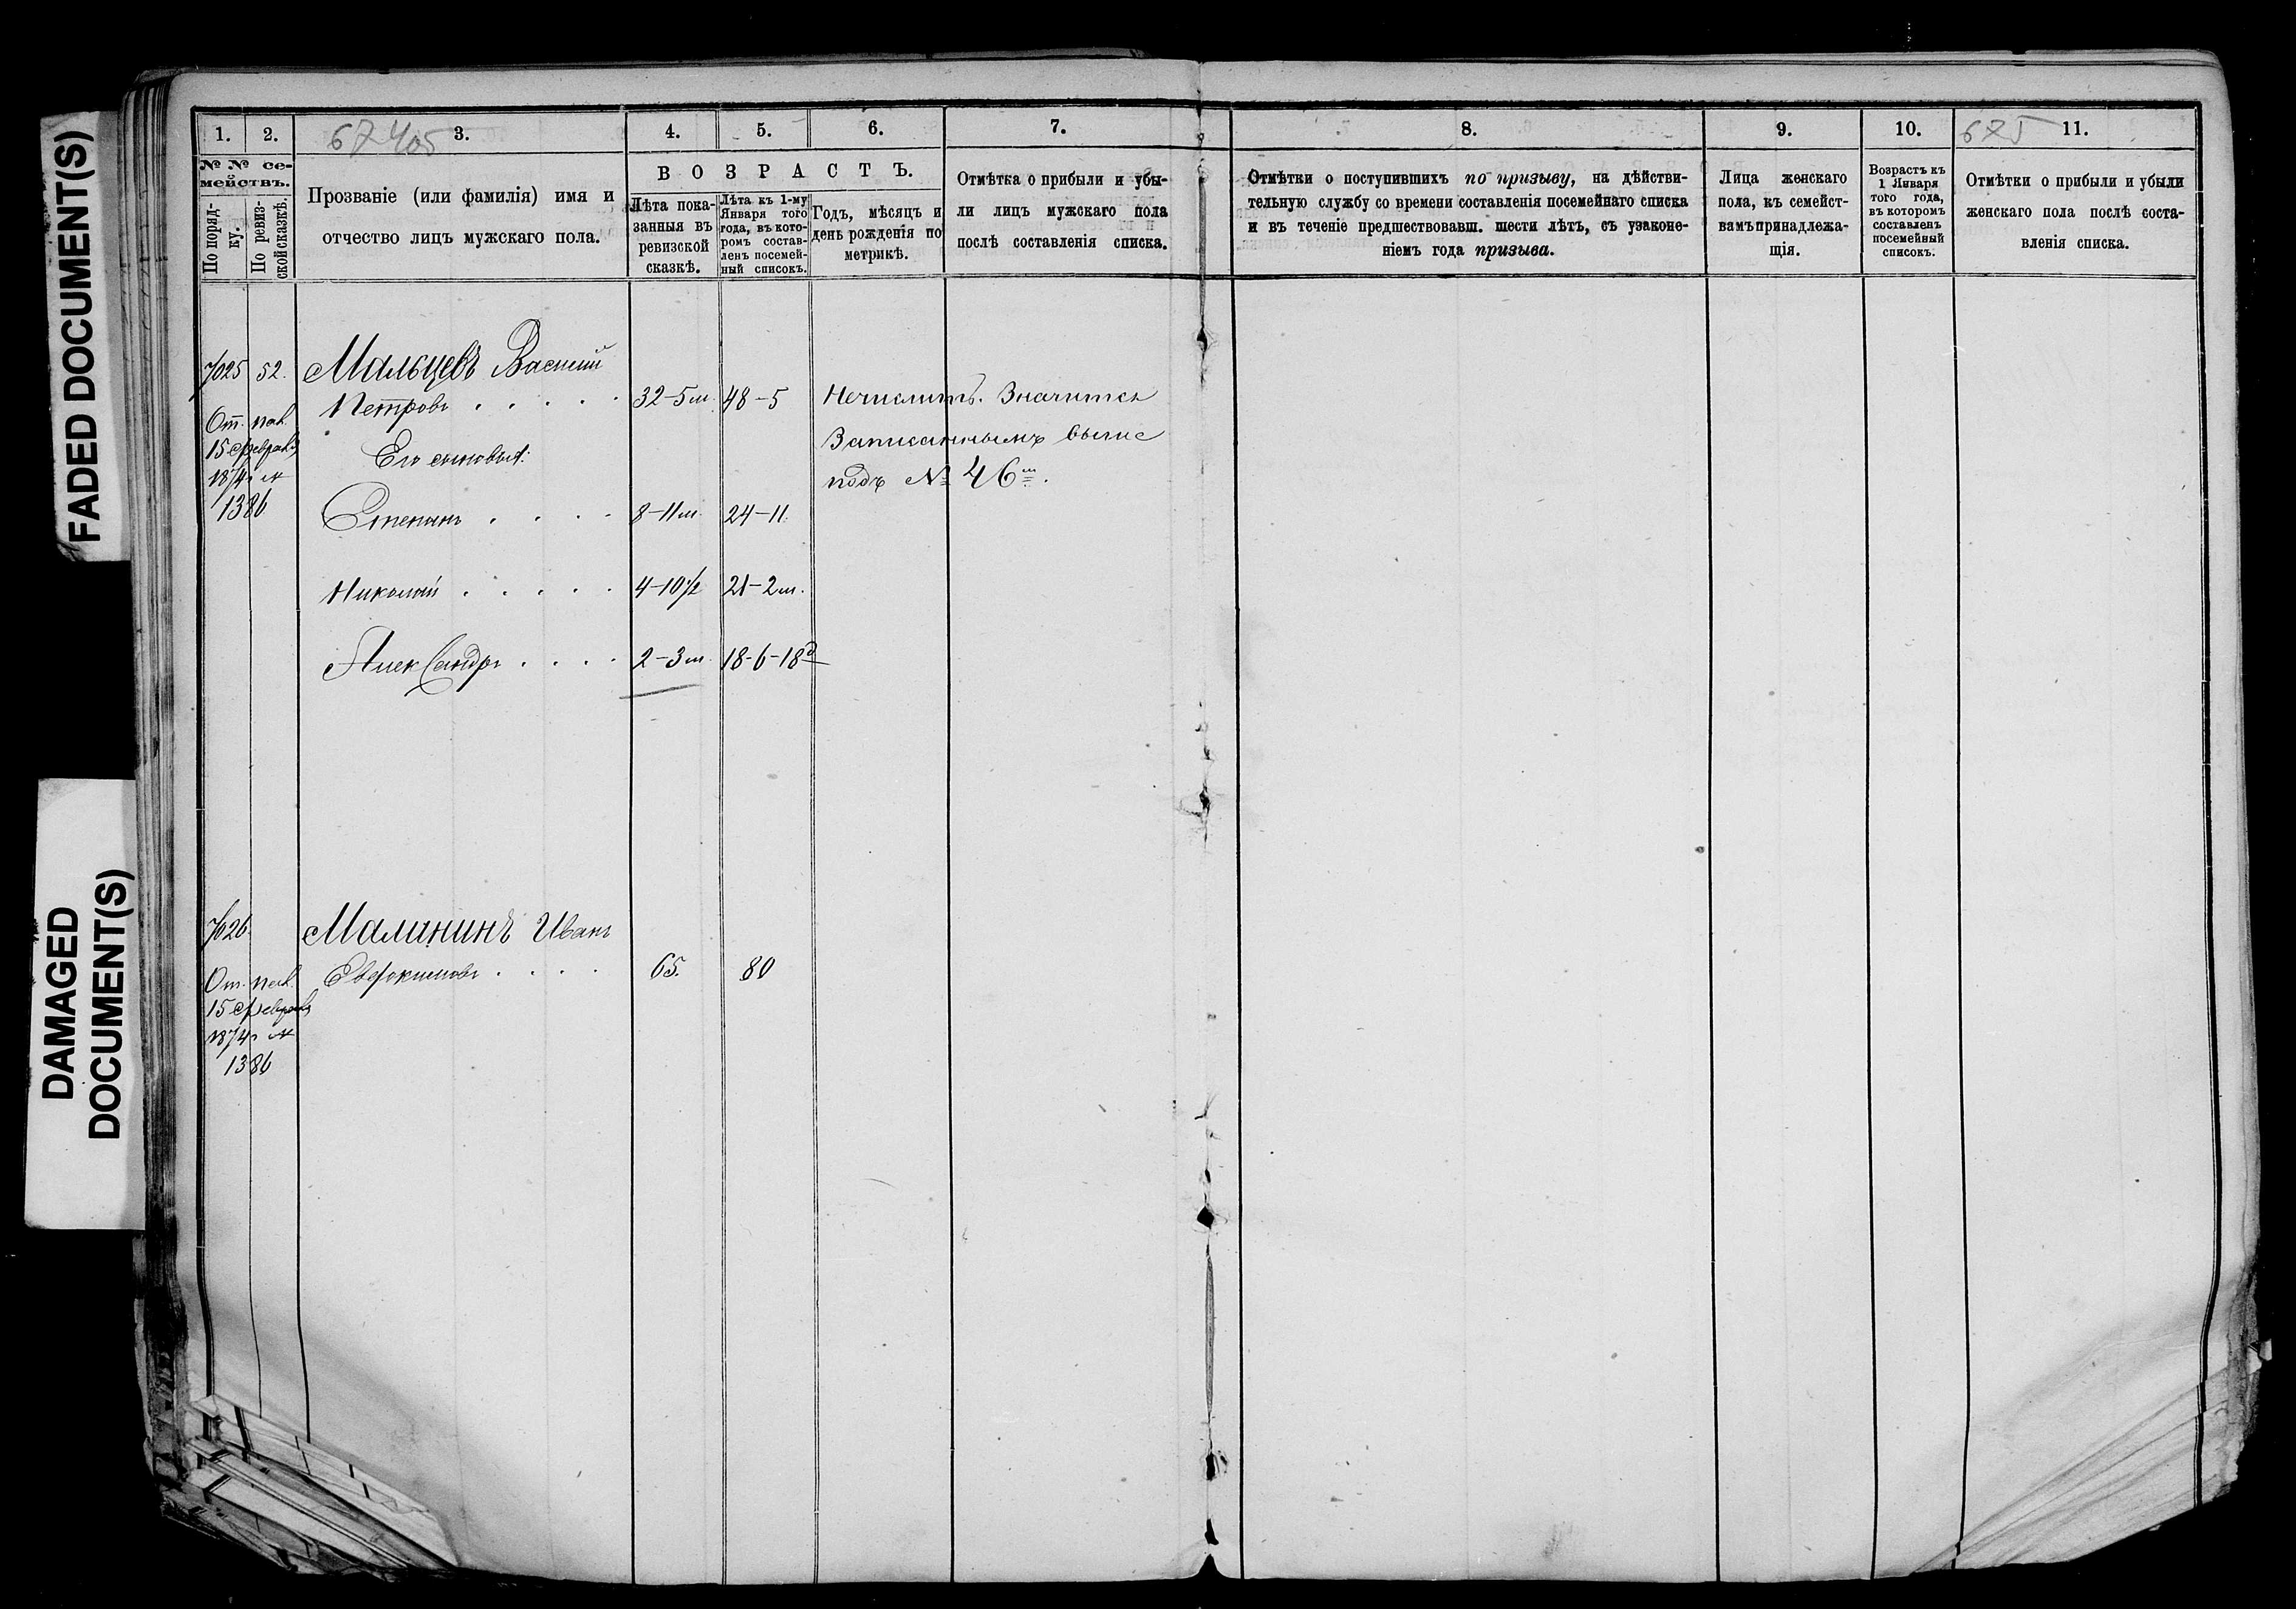 FADED DOCUMENT(S)
DAMAGED
DOCUMENT(S)
1. 2. 3. 4. 5. 6. 7. 8. 9. 10. 11.
67 405
675
№ № се-
мействъ.
По поряд-
ку.
По ревиз-
ской сказкѣ.
Прозваніе (или фамилія) имя и
отчество лицъ мужскаго пола.
ВОЗРАСТЪ.
Лѣта пока-
занныя въ
ревизской
сказкѣ.
Лѣта къ 1-му
Января того
года, въ кото-
ромъ состав-
ленъ посемей-
ный списокъ.
Годъ, мѣсяцъ и
день рожденія по
метрикѣ.
Отмѣтка о прибыли и убы-
ли лицъ мужскаго пола
послѣ составленія списка.
Отмѣтки о поступившихъ по призыву, на дѣйстви-
тельную службу со времени составленія посемейнаго списка
и въ теченіе предшествовавш. шести лѣтъ, съ узаконе-
ніемъ года призыва.
Лица женскаго
пола, къ семейст-
вамъ принадлежа-
щія.
Возрастъ къ
1 Января
того года,
въ которомъ
составленъ
посемейный
списокъ.
Отмѣтки о прибыли и убыли
женскаго пола послѣ соста-
вленія списка.
7025 52. Мальцевъ Василій
Петровъ . . . . . 32-5м. 48-5 Нечислитъ. Значится
От. пал.
15 февраля
1874 г №
1386
Записаннымъ выше
подъ № 46м.
Его сыновья:
Степанъ . . . . 8-11м. 24-11.
Николай . . . . . 4-10½ 21-2м.
Александръ . . . . 2-3м. 18-6-18д
7026. Малининъ Иванъ
Евдокимовъ . . . . 65. 80
От. пал.
15 февраля
1874 г №
1386